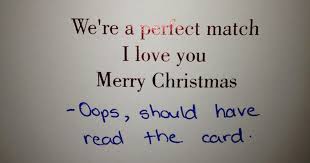 We're a perfect match
I love you
Merry Christmas
-Oops, should have
read the card.